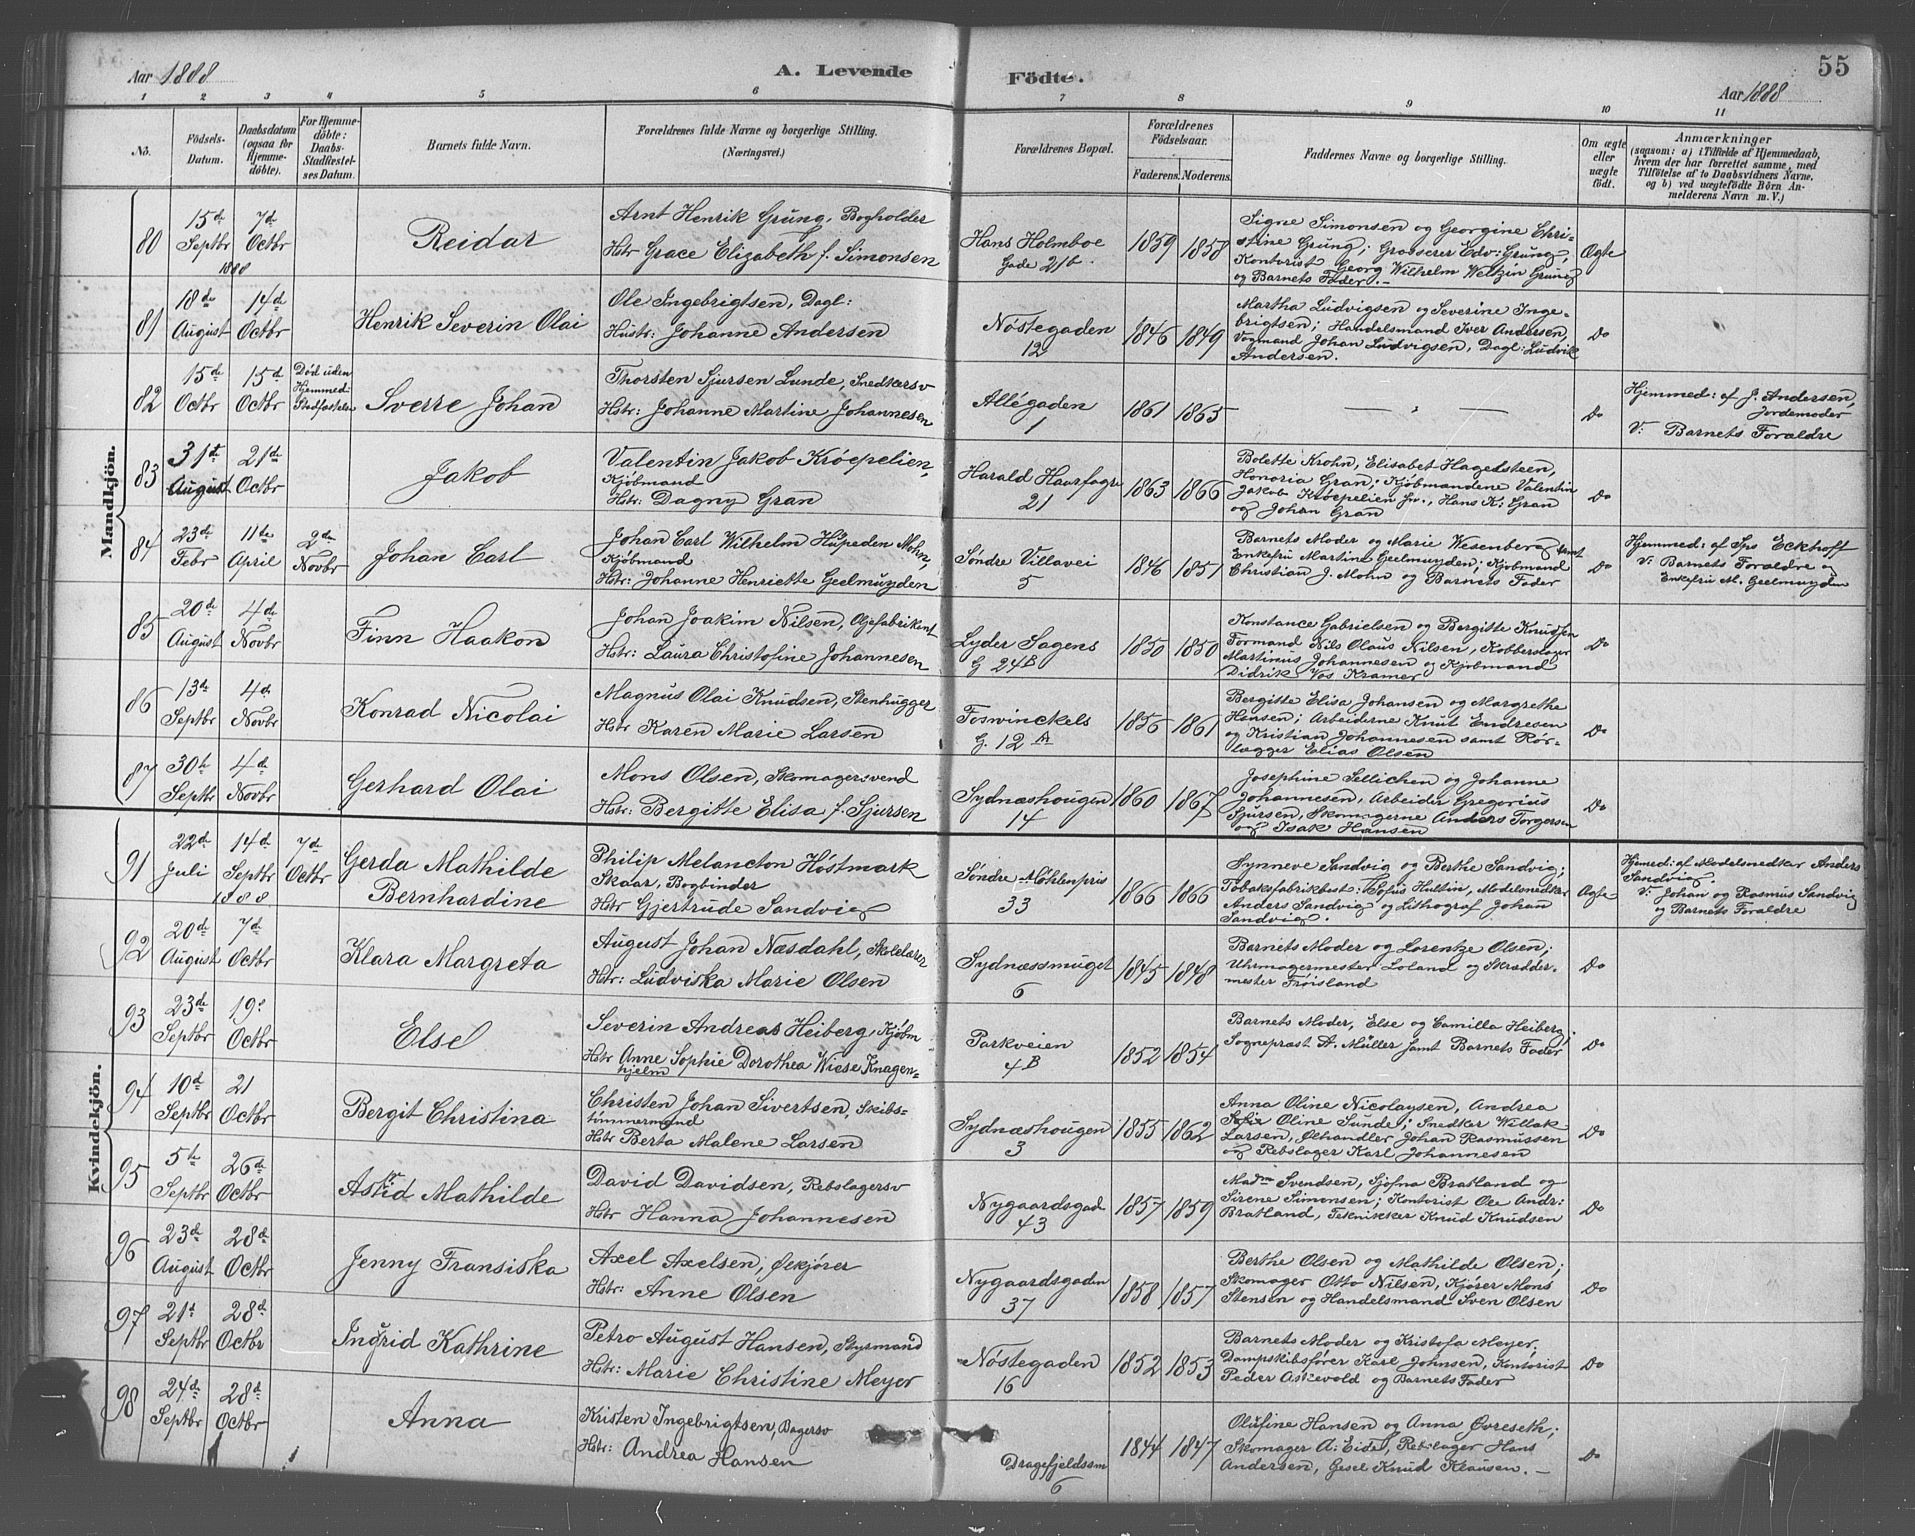 Aar 1888
A. Levende
Fødte.
Aar 1888
55
1 2 3 4 5 6 7 8 9 10 11
No.
Födsels-Datum.
Daabsdatum (ogsaa for Hjemme-döbte).
For Hjemme-döbte: Daabs-Stadfæstel-ses Datum.
Barnets fulde Navn.
Forældrenes fulde Navne og borgerlige Stilling.
(Næringsvei.)
Forældrenes Bopæl.
Forældrenes Födselsaar.
Faderens. Moderens.
Faddernes Navne og borgerlige Stilling.
Om ægte eller uægte födt.
Anmærkninger
(saasom: a) i Tilfælde af Hjemmedaab,
hvem der har forrettet samme, med
Tilföielse af to Daabsvidners Navne,
og b) ved uægtefödte Börn An-
melderens Navn m. V.)
Mandkjön.
80 15de Septbr 1888 7de Octbr Reidar
Arnt Henrik Grung, Bogholder
Hstr Grace Elizabeth f. Simonsen
Hans Holmboe Gade 21b. 1859 1858
Signe Simonsen og Georgine Chri-
stine Grung; Grosserer Edv: Grung,
Kontorist Georg Wilhelm Weltzin Grung
og Barnets Fader.-
Ægte
81 18de August 14de Octbr Henrik Severin Olai
Ole Ingebrigtsen, Dagl:
Hustr: Johanne Andersen
Nøstegaden 12 1846 1849
Martha Ludvigsen og Severine Inge-
brigtsen; Handelsmand Iver Andersen,
Vogmand Johan Ludvigsen, Dagl: Ludvik
Andersen.
Do
82 15de Octbr 15de Octbr Død uden Hjemmed: Stadfæstelse Sverre Johan
Thorsten Sjursen Lunde, Snedkersv
Hstr: Johanne Martine Johannesen
Allégaden 1 1861 1865
— " —
Do
Hjemmed: af J. Andersen,
Jordemoder
V: Barnets Forældre
83 31te August 21de Octbr Jakob
Valentin Jakob Krøepelien,
Kjøbmand
Hstr: Dagny Gran
Harald Haarfagre 21 1863 1866
Bolette Krohn, Elisabet Hagedsteen,
Honoria Gran; Kjøbmandene Valentin
Jakob Krøepelien jr., Hans K: Gran
og Johan Gran
Do
84 23de Febr 11te April 2den Novbr Johan Carl
Johan Carl Wilhelm Hüpeden Mohn,
Kjøbmand
Hstr: Johanne Henriette Geelmuyden
Søndre Villavei 5 1846 1851
Barnets Moder og Marie Wesenberg samt
Enkefru Martine Geelmuyden; Kjøbmand
Christian J. Mohn og Barnets Fader
Do
Hjemmed: af Sps Eckhoff
V: Barnets Forældre og
Enkefru M. Geelmuyden
85 20de August 4de Novbr Finn Haakon
Johan Joakim Nilsen, Oljefabrikent
Hstr: Laura Christofine Johannesen
Lyder Sagens G 24B 1850 1850
Konstance Gabrielsen og Bergitte Knudsen
Formand Nils Olaus Nilsen, Kobberslager
Martinus Johannesen og Kjøbmand
Didrik Vos Kramer
Do
86 13de Septbr 4de Novbr Konrad Nicolai
Magnus Olai Knudsen, Stenhugger
Hstr Karen Marie Larsen
Foswinckels G. 12 A 1856 1861
Bergitte Elisa Johansen og Margrethe
Hansen; Arbeiderne Knut Endresen
og Kristian Johannesen samt Rør-
lægger Elias Olsen
Do
87 30te Septbr 4de Novbr Gerhard Olai
Mons Olsen, Skomagersvend
Hstr: Bergitte Elisa f. Sjursen
Sydnæshougen 14 1860 1867
Josephine Sellichen og Johanne
Johannesen, Arbeider Gregorius
Sjursen, Skomagerne Anders Torgersen
og Isak Hansen
Do
Kvindekjön.
91 22de Juli 14de Septbr 1888 7de Octbr Gerda Mathilde Bernhardine
Philip Melancton Høstmark
Skaar, Bogbinder
Hstr Gjertrude Sandvig
Søndre Møhlenpris 33 1866 1866
Synneve Sandvig og Berthe Sandvig;
Tobaksfabrikbest: Sofus Hultin, Modelsnedker
Anders Sandvig og Lithograf Johan
Sandvig.
Ægte
Hjemmed: af Modelsnedker Anders
Sandvig
V: Johan og Rasmus Sandvig
og Barnets Forældre
92 20de August 7de Octbr Klara Margreta
August Johan Næsdahl, Skolelærer
Hstr: Ludviska Marie Olsen
Sydnæssmuget 6 1845 1848
Barnets Moder og Lorentze Olsen;
Uhrmagermester Loland og Skrædder-
mester Frøisland
Do
93 23de Septbr 19e Octbr Else
Severin Andreas Heiberg, Kjøbm
Hstr Anne Sophie Dorothea Wiese Knagen-
hjelm
Parkveien 4B 1852 1854
Barnets Moder, Else og Camilla Heiberg;
Sogneprest A. Müller samt Barnets Fader
Do
94 10de Septbr 21 Octbr Bergit Christina
Christen Johan Sivertsen, Skibs-
tømmermand
Hstr Berta Malene Larsen
Sydnæshougen 3 1855 1862
Anna Oline Nicolaysen, Andrea
Oline Sunde; Snedker Willak
Larsen, Ølhandler Johan Rasmussen
og Rebslager Karl Johannesen
Do
95 5te Septbr 26de Octbr Astrid Mathilde
David Davidsen, Rebslagersv
Hstr Hanna Johannesen
Nygaardsgad 43 1857 1859
Madm Svendsen, Sjofna Bratland og
Sirene Simonsen; Kontorist Ole Andr:
Bratland, Teknikker Knud Knudsen
Do
96 23de August 28de Octbr Jenny Fransiska
Axel Axelsen, Ølkjører
Hstr: Anne Olsen
Nygaardsgaden 37 1858 1857
Berthe Olsen og Mathilde Olsen;
Skomager Otto Nilsen, Kjører Mons
Stensen og Handelsmand Sven Olsen
Do
97 21d Septbr 28de Octbr Ingrid Kathrine
Petro August Hansen, Styrmand
Hstr: Marie Christine Meyer
Nøstegaden 16 1852 1853
Barnets Moder og Kristofa Meyer,
Dampskibsfører Karl Johnsen, Kontorist
Peder Askevold og Barnets Fader
Do
98 24de Septbr 28d Octbr Anna
Kristen Ingebrigtsen, Bagersv
Hstr: Andrea Hansen
Dragefjeldssm 6 1844 1847
Olufine Hansen og Anna Øvreseth;
Skomager A: Eide, Rebslager Hans
Andersen, Gesel Knud Klausen. —
Do